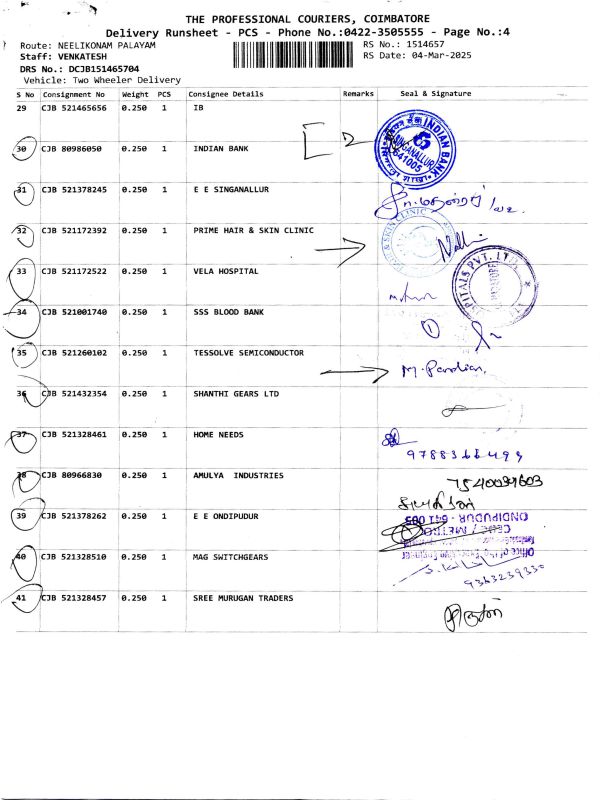 THE PROFESSIONAL COURIERS, COIMBATORE
Delivery Runsheet - PCS - Phone No.:0422-3505555 - Page No.:4
Route: NEELIKONAM PALAYAM RS No.: 1514657
Staff: VENKATESH RS Date: 04-Mar-2025
DRS No.: DCJB151465704
Vehicle: Two Wheeler Delivery
S No Consignment No Weight PCS Consignee Details Remarks Seal & Signature
29 CJB 521465656 0.250 1 IB
30 CJB 80986050 0.250 1 INDIAN BANK 2 INDIAN BANK SINGANALLUR 641005
31 CJB 521378245 0.250 1 E E SINGANALLUR
32 CJB 521172392 0.250 1 PRIME HAIR & SKIN CLINIC & SKIN CLINIC
33 CJB 521172522 0.250 1 VELA HOSPITAL PVT. LTD
34 CJB 521001740 0.250 1 SSS BLOOD BANK 1
35 CJB 521260102 0.250 1 TESSOLVE SEMICONDUCTOR M. Pandian
36 CJB 521432354 0.250 1 SHANTHI GEARS LTD
37 CJB 521328461 0.250 1 HOME NEEDS
38 CJB 80966830 0.250 1 AMULYA INDUSTRIES 7540034603
39 CJB 521378262 0.250 1 E E ONDIPUDUR ONDIPUDUR - 641 005
CEDC / METRO
40 CJB 521328510 0.250 1 MAG SWITCHGEARS 9363239330
41 CJB 521328457 0.250 1 SREE MURUGAN TRADERS